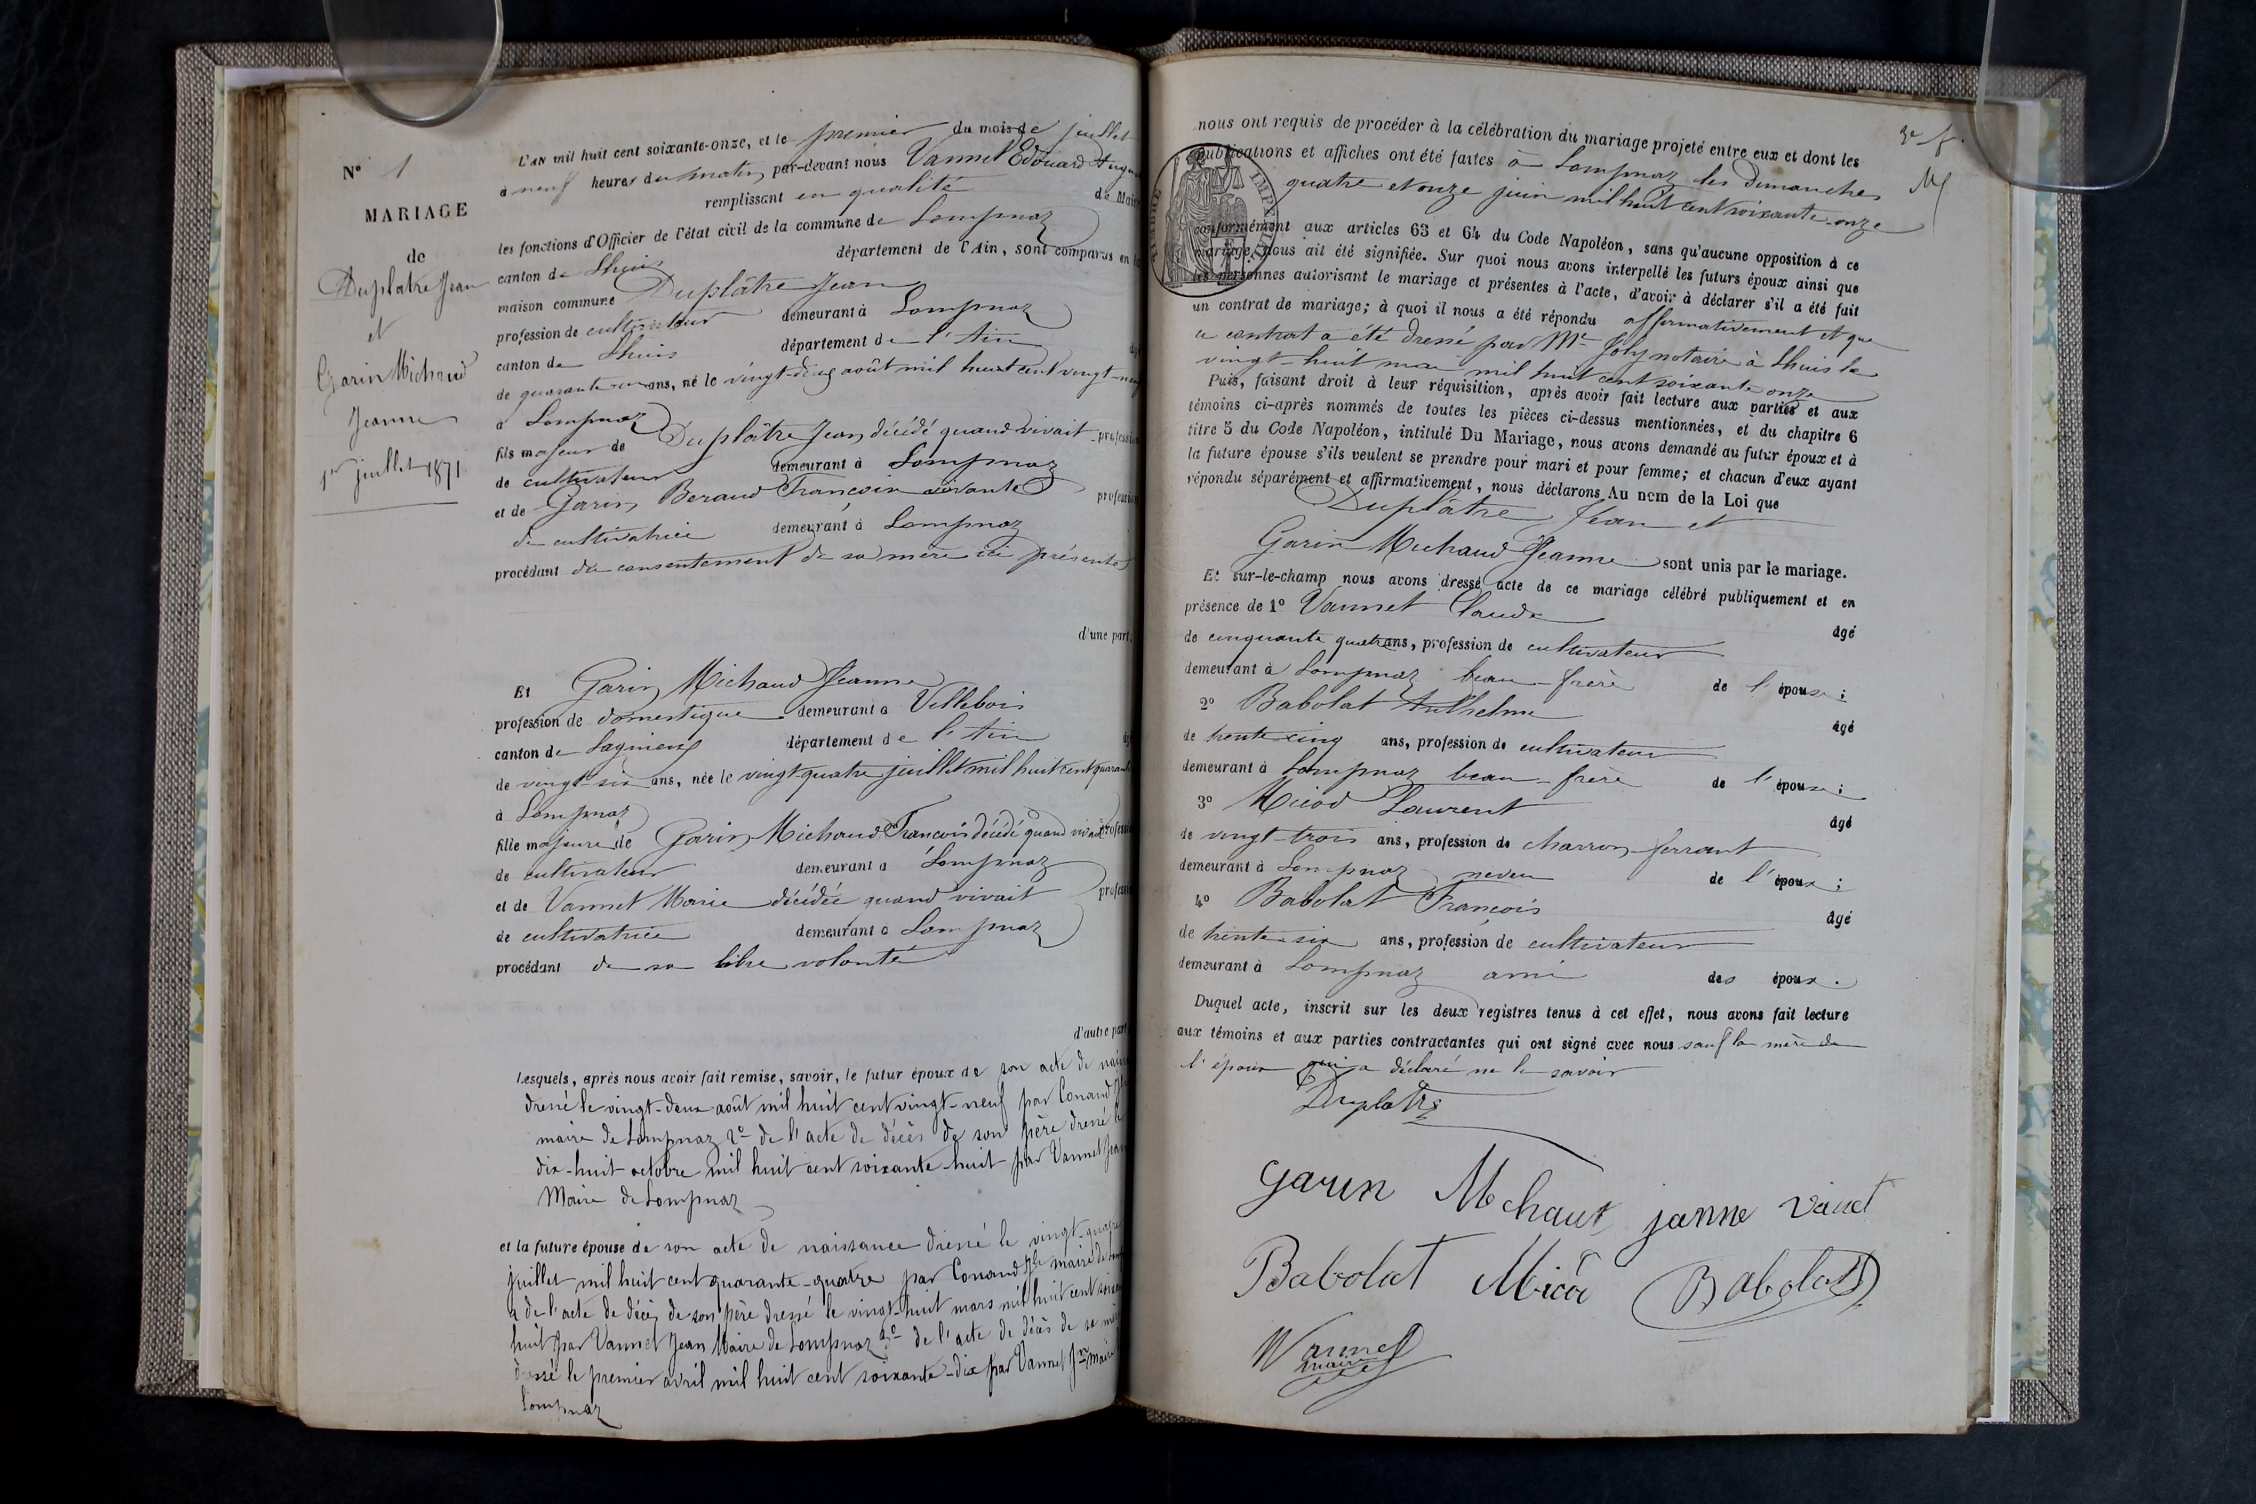 N° 1
MARIAGE
de
Duplatre Jean
et
Garin Michaud
Jeanne
1er juillet 1871
L'AN mil huit cent soixante-onze, et le premier du mois de juillet
à neuf heures du matin par-devant nous Vannet Edouard
remplissant en qualité de Maire
les fonctions d'Officier de l'état civil de la commune de Lompnaz
canton de Lhuis département de l'Ain, sont comparus en la
maison commune Duplâtre Jean
profession de cultivateur demeurant à Lompnaz
canton de Lhuis département de l'Ain
de quarante-un ans, né le vingt-deux août mil huit cent vingt-neuf
à Lompnaz
fils majeur de Duplâtre Jean décédé quand vivait profession
de cultivateur demeurant à Lompnaz
et de Garin Beraud Françoise vivante profession
de cultivatrice demeurant à Lompnaz
procédant du consentement de sa mère ici présente
d'une part,
Et Garin Michaud Jeanne
profession de domestique demeurant à Villebois
canton de Lagnieu département de l'Ain
de vingt-six ans, née le vingt-quatre juillet mil huit cent quarante
à Lompnaz
fille majeure de Garin Michaud François décédé quand vivait profession
de cultivateur demeurant à Lompnaz
et de Vannet Marie décédée quand vivait profession
de cultivatrice demeurant à Lompnaz
procédant de sa libre volonté
d'autre part
Lesquels, après nous avoir fait remise, savoir, le futur époux de son acte de
dressé le vingt-deux août mil huit cent vingt-neuf par Conand
maire de Lompnaz 2° de l'acte de décès de son père dressé le
dix-huit octobre mil huit cent soixante-huit par Vannet Jean
Maire de Lompnaz
et la future épouse de son acte de naissance dressé le vingt-quatre
juillet mil huit cent quarante-quatre par Conand maire de
2 de l'acte de décès de son père dressé le vingt-huit mars mil huit cent
huit par Vannet Jean Maire de Lompnaz 3° de l'acte de décès de sa mère
dressé le premier avril mil huit cent soixante-dix par Vannet Jn maire
Lompnaz
nous ont requis de procéder à la célébration du mariage projeté entre eux et dont les
publications et affiches ont été faites à Lompnaz les Dimanches
quatre et onze juin mil huit cent soixante-onze
conformément aux articles 63 et 64 du Code Napoléon, sans qu'aucune opposition à ce
mariage nous ait été signifiée. Sur quoi nous avons interpellé les futurs époux ainsi que
les personnes autorisant le mariage et présentes à l'acte, d'avoir à déclarer s'il a été fait
un contrat de mariage; à quoi il nous a été répondu affirmativement et que
ce contrat a été dressé par Me Joly notaire à Lhuis le
vingt-huit mai mil huit cent soixante onze
Puis, faisant droit à leur réquisition, après avoir fait lecture aux parties et aux
témoins ci-après nommés de toutes les pièces ci-dessus mentionnées, et du chapitre 6
titre 5 du Code Napoléon, intitulé Du Mariage, nous avons demandé au futur époux et à
la future épouse s'ils veulent se prendre pour mari et pour femme; et chacun d'eux ayant
répondu séparément et affirmativement, nous déclarons Au nom de la Loi que
Duplâtre Jean et
Garin Michaud Jeanne sont unis par le mariage.
Et sur-le-champ nous avons dressé acte de ce mariage célébré publiquement et en
présence de 1° Vannet Claude âgé
de cinquante quatre ans, profession de cultivateur
demeurant à Lompnaz beau-frère de l'épouse;
2° Babolat Anthelme âgé
de trente-cinq ans, profession de cultivateur
demeurant à Lompnaz beau-frère de l'épouse;
3° Micod Laurent âgé
de vingt-trois ans, profession de charron-ferrant
demeurant à Lompnaz neveu de l'époux;
4° Babolat François âgé
de trente-six ans, profession de cultivateur
demeurant à Lompnaz ami des époux.
Duquel acte, inscrit sur les deux registres tenus à cet effet, nous avons fait lecture
aux témoins et aux parties contractantes qui ont signé avec nous sauf la mère de
l'époux qui a déclaré ne le savoir
Duplatre
garin Mchaut janne Vanet
Babolat Micod Babolat
Vannet
maire